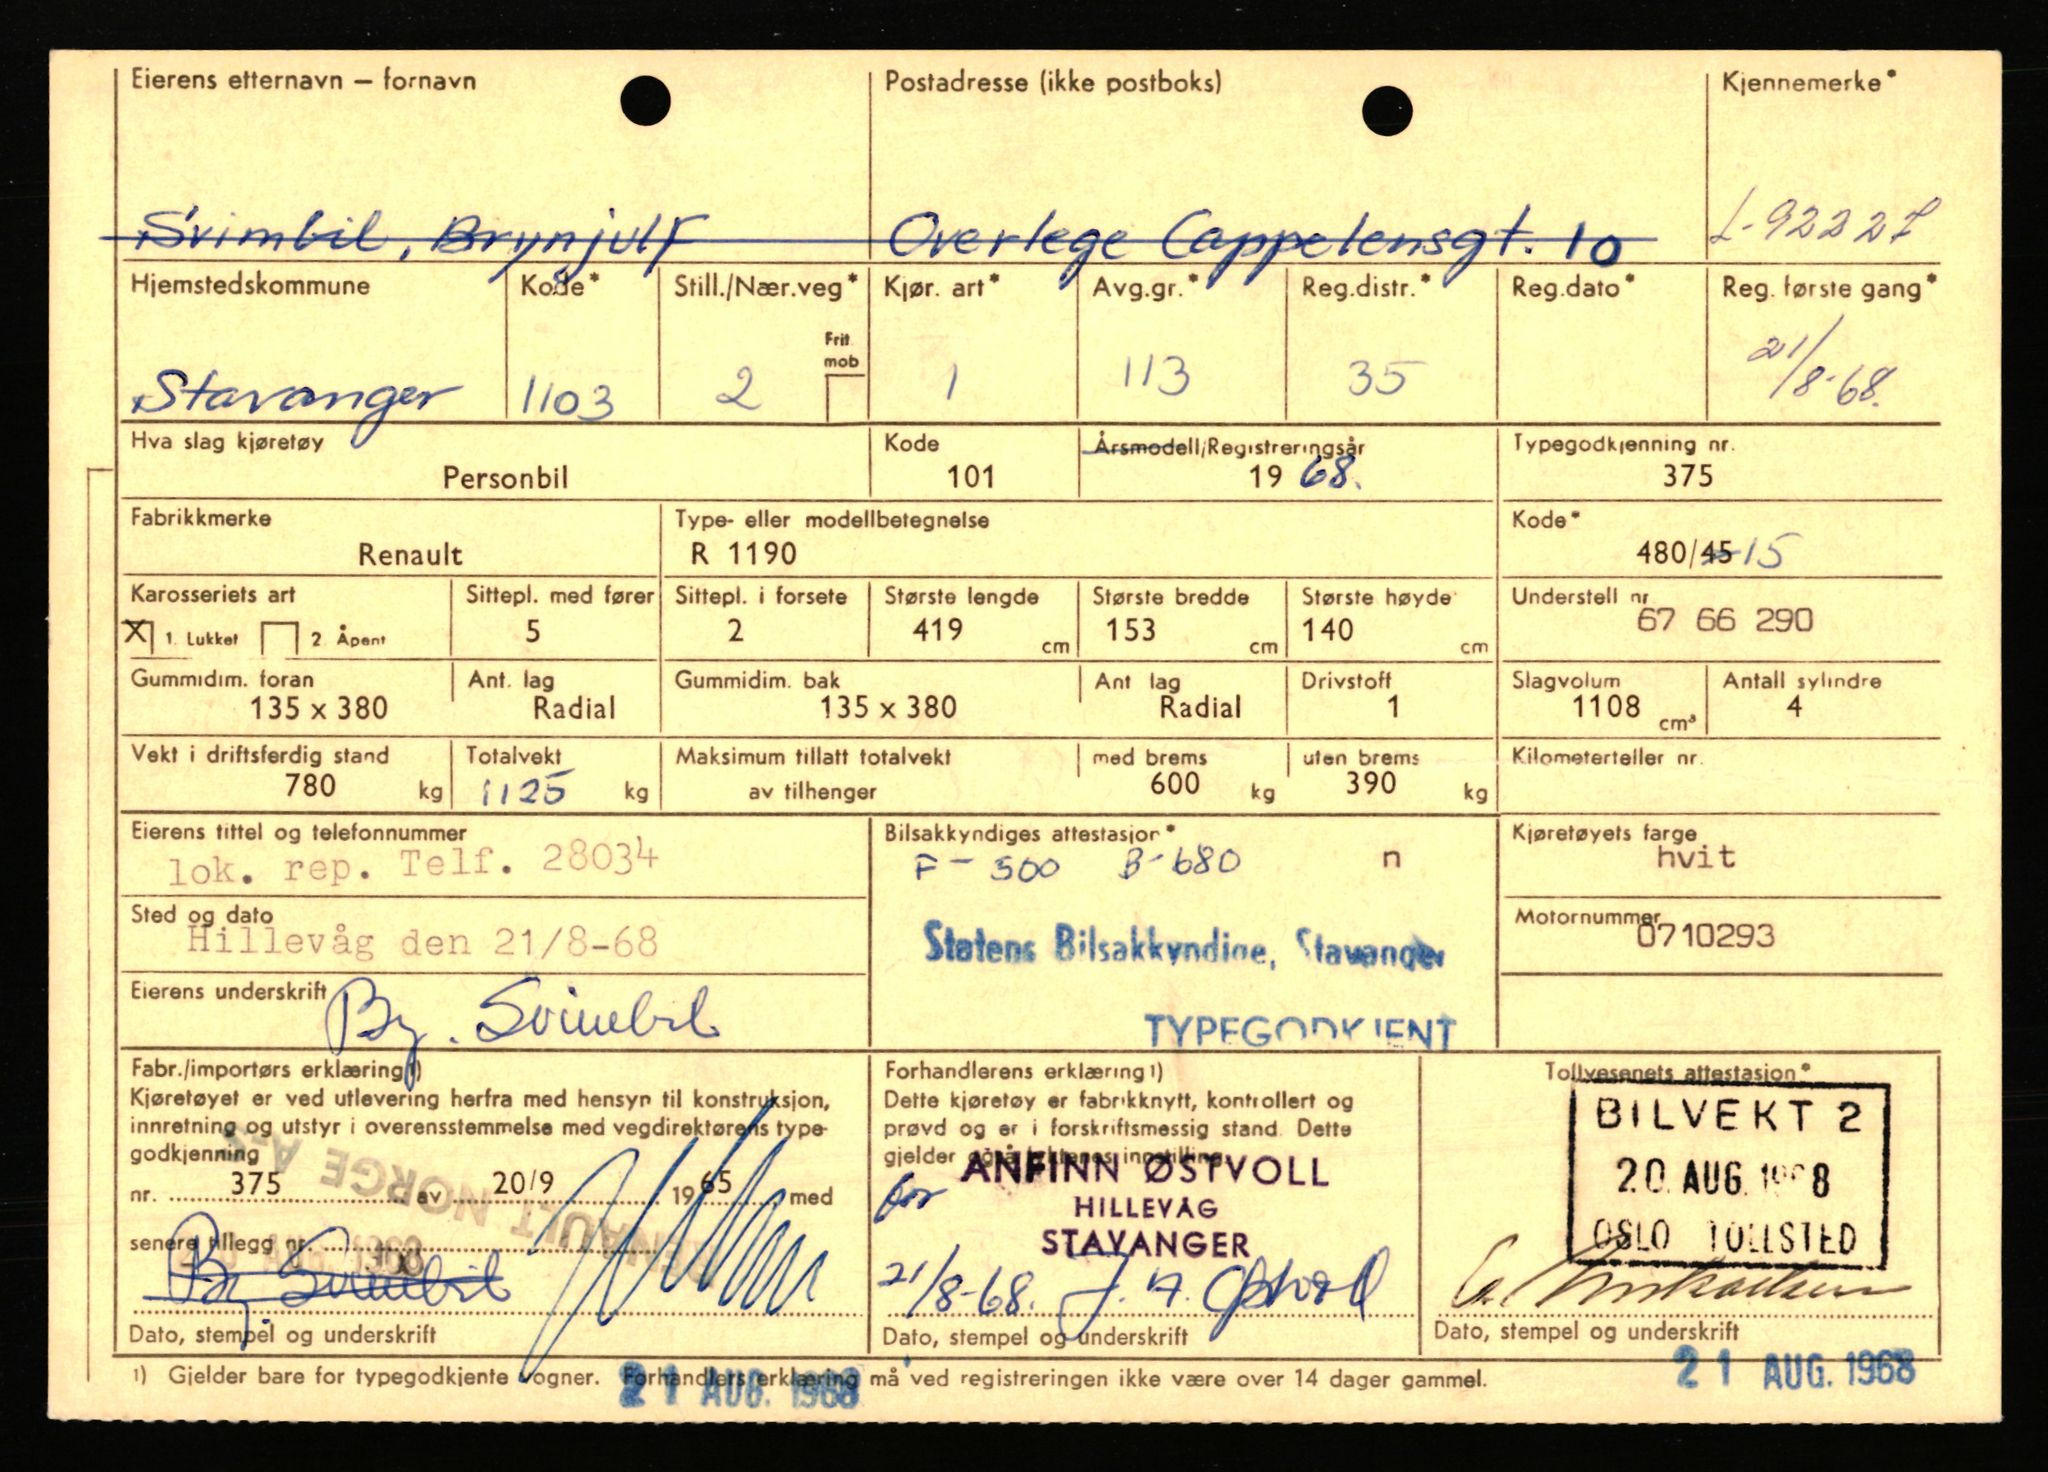 Eierens etternavn — fornavn
Postadresse (ikke postboks)
Kjennemerke*
Svimbil, Brynjulf
Overlege Cappelensgt. 10
L-92227
Hjemstedskommune
Kode*
Still./Nær.veg*
Kjør. art*
Avg.gr.*
Reg.distr.*
Reg.dato*
Reg. første gang*
Frit mob
Stavanger
1103
2
1
113
35
21/8-68.
Hva slag kjøretøy
Kode
Årsmodell/Registreringsår
Typegodkjenning nr.
Personbil
101
19 68.
375
Fabrikkmerke
Type- eller modellbetegnelse
Kode*
Renault
R 1190
480/45 15
Karosseriets art
Sittepl. med fører
Sittepl. i forsete
Største lengde
Største bredde
Største høyde
Understell nr.
X 1. Lukket 2. Åpent
5
2
419 cm
153 cm
140 cm
67 66 290
Gummidim. foran
Ant. lag
Gummidim. bak
Ant lag
Drivstoff
Slagvolum
Antall sylindre
135 x 380
Radial
135 x 380
Radial
1
1108 cm³
4
Vekt i driftsferdig stand
Totalvekt
Maksimum tillatt totalvekt
med brems
uten brems
Kilometerteller nr.
780 kg
1125 kg
av tilhenger
600 kg
390 kg
Eierens tittel og telefonnummer
Bilsakkyndiges attestasjon*
Kjøretøyets farge
lok. rep. Telf. 28034
F- 500 B-680 n
hvit
Sted og dato
Motornummer
Hillevåg den 21/8-68
Statens Bilsakkyndige, Stavanger
0710293
Eierens underskrift
By. Svimbil
TYPEGODKJENT
Fabr./importørs erklæring 1)
Kjøretøyet er ved utlevering herfra med hensyn til konstruksjon,
innretning og utstyr i overensstemmelse med vegdirektørens type-
godkjenning
nr. 375 av 20/9 1965 med
senere tillegg nr.
RENAULT NORGE A-S
By Svimbil
Dato, stempel og underskrift
Forhandlerens erklæring 1)
Dette kjøretøy er fabrikknytt, kontrollert og
prøvd og er i forskriftsmessig stand. Dette
gjelder også lyktenes innstilling.
for
ANFINN ØSTVOLL
HILLEVÅG
STAVANGER
21/8-68.
Dato, stempel og underskrift
Tollvesenets attestasjon*
BILVEKT 2
20. AUG. 1968
OSLO TOLLSTED
Dato, stempel og underskrift
1) Gjelder bare for typegodkjente vogner. Forhandlers erklæring må ved registreringen ikke være over 14 dager gammel.
21 AUG. 1968
21 AUG. 1968